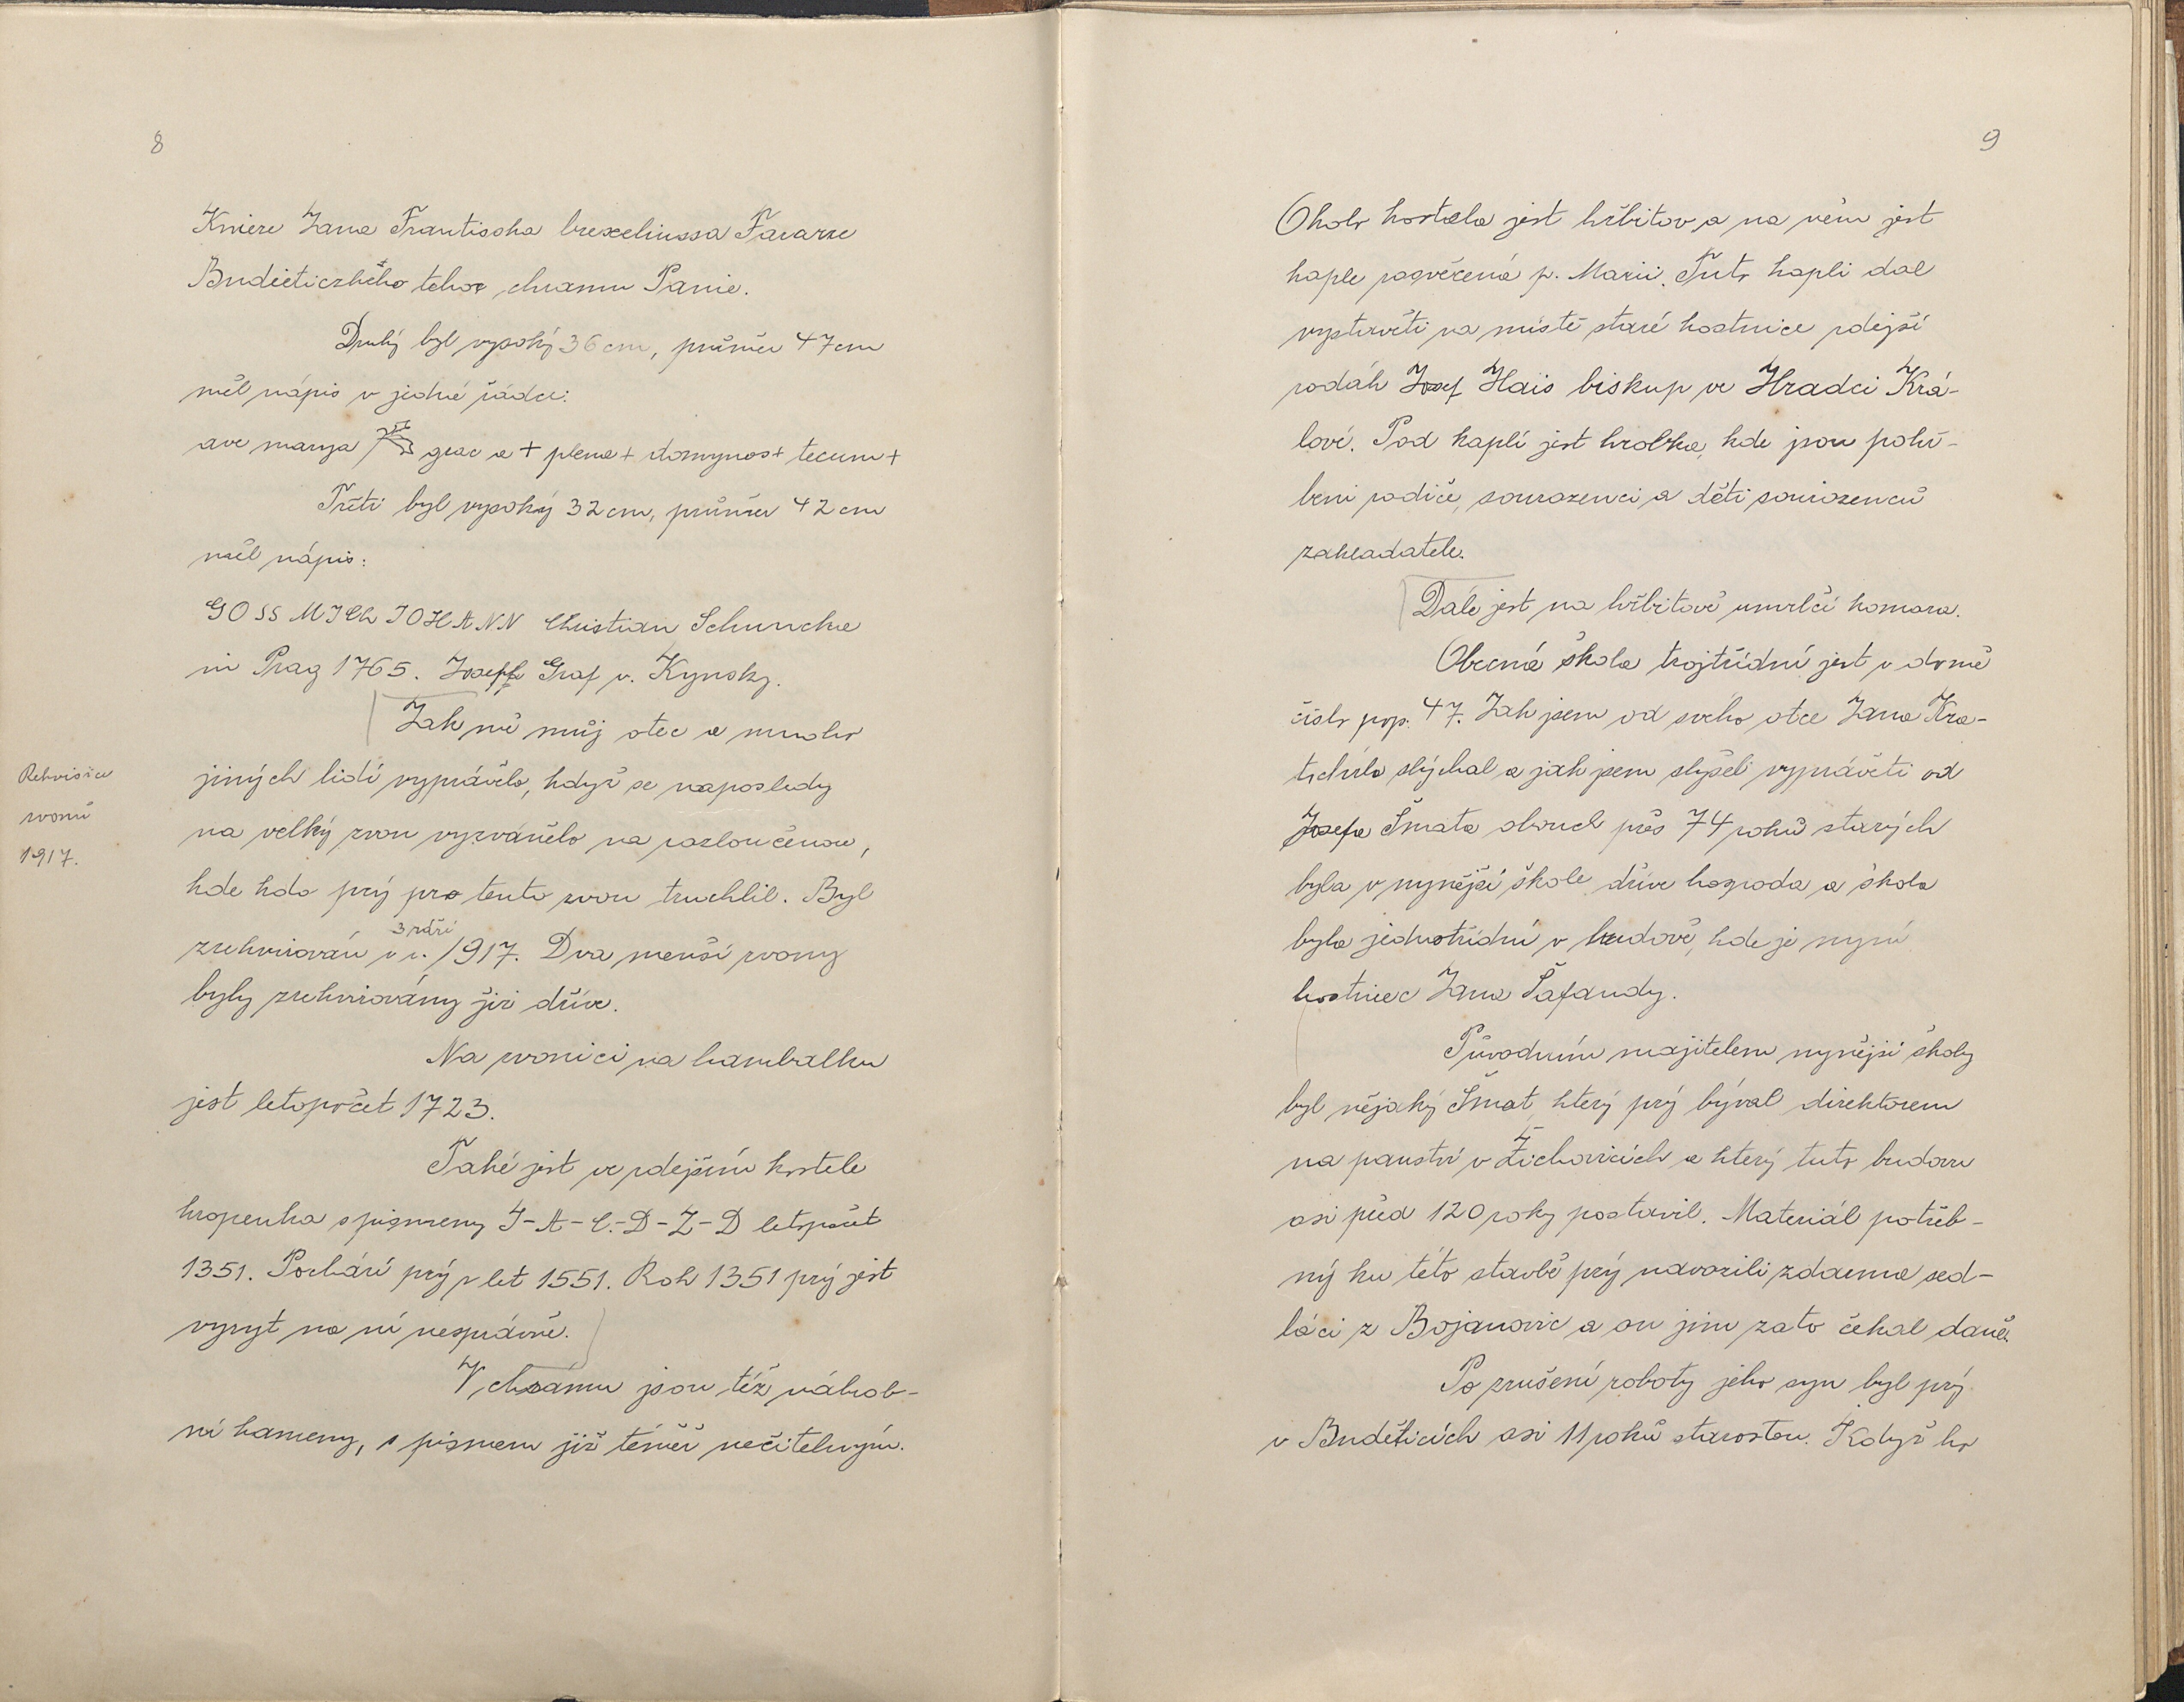 8
Kniere Jana Frantiseka brexeliussa Fararze
Budieticzkeho tehor chramu Panie.
Druhý byl vysoký 36 cm, průměr 47 cm
měl nápis v jedné řádce:
ave marya grac a + plena + domynos + tecum +
Třetí byl vysoký 32 cm, průměr 42 cm
měl nápis:
GOSS MICh JOHANN Christian Schuncke
in Prag 1765. Josefh Graf v. Kynsky.
Jak mě můj otec a mnoho
Rekvisice
zvonů
1917.
jiných lidí vyprávělo, když se naposledy
na velký zvon vyzvánělo na rozloučenou,
kde kdo prý pro tento zvon truchlil. Byl
3 září
zrekvirován v r. 1917. Dva menší zvony
byly zrekvirovány již dříve.
Na zvonici na hambalku
jest letopočet 1723.
Také jest ve zdejším kostele
kropenka s pismeny I-A-C.-D-Z-D letopočet
1351. Pochází prý z let 1551. Rok 1351 prý jest
vyryt na ní nesprávně.
V chrámu jsou též náhrob-
ní kameny, s pismem již téměř nečitelným.
9
Okolo kostela jest hřbitov a na něm jest
kaple zasvěcená p. Marii. Tuto kapli dal
vystavěti na místě staré kostnice zdejší
rodák Josef Hais biskup ve Hradci Krá-
lové. Pod kaplí jest hrobka, kde jsou pohř-
beni rodiče, sourozenci a děti sourozenců
zakladatele.
Dále jest na hřbitově umrlčí komora.
Obecná škola trojtřídní jest v domě
číslo pop. 47. Jak jsem od svého otce Jana Kra-
tochvíla slýchal a jak jsem slyšel vyprávěti od
Josefa Šmata obouch přes 74 roků starých
byla v nynější škole dříve hospoda a škola
byla jednotřídní v budově, kde je nyní
hostinec Jana Šafandy.
Původním majitelem nynější školy
byl nějaký Šmat, který prý býval direktorem
na panství v Žichovicích a který tuto budovu
asi před 120 roky postavil. Materiál potřeb-
ný ku této stavbě prý navozili zdarma sed-
láci z Bojanovic a on jim zato čekal daně.
Po zrušení roboty jeho syn byl prý
v Budětících asi 11 roků starostou. Když ho